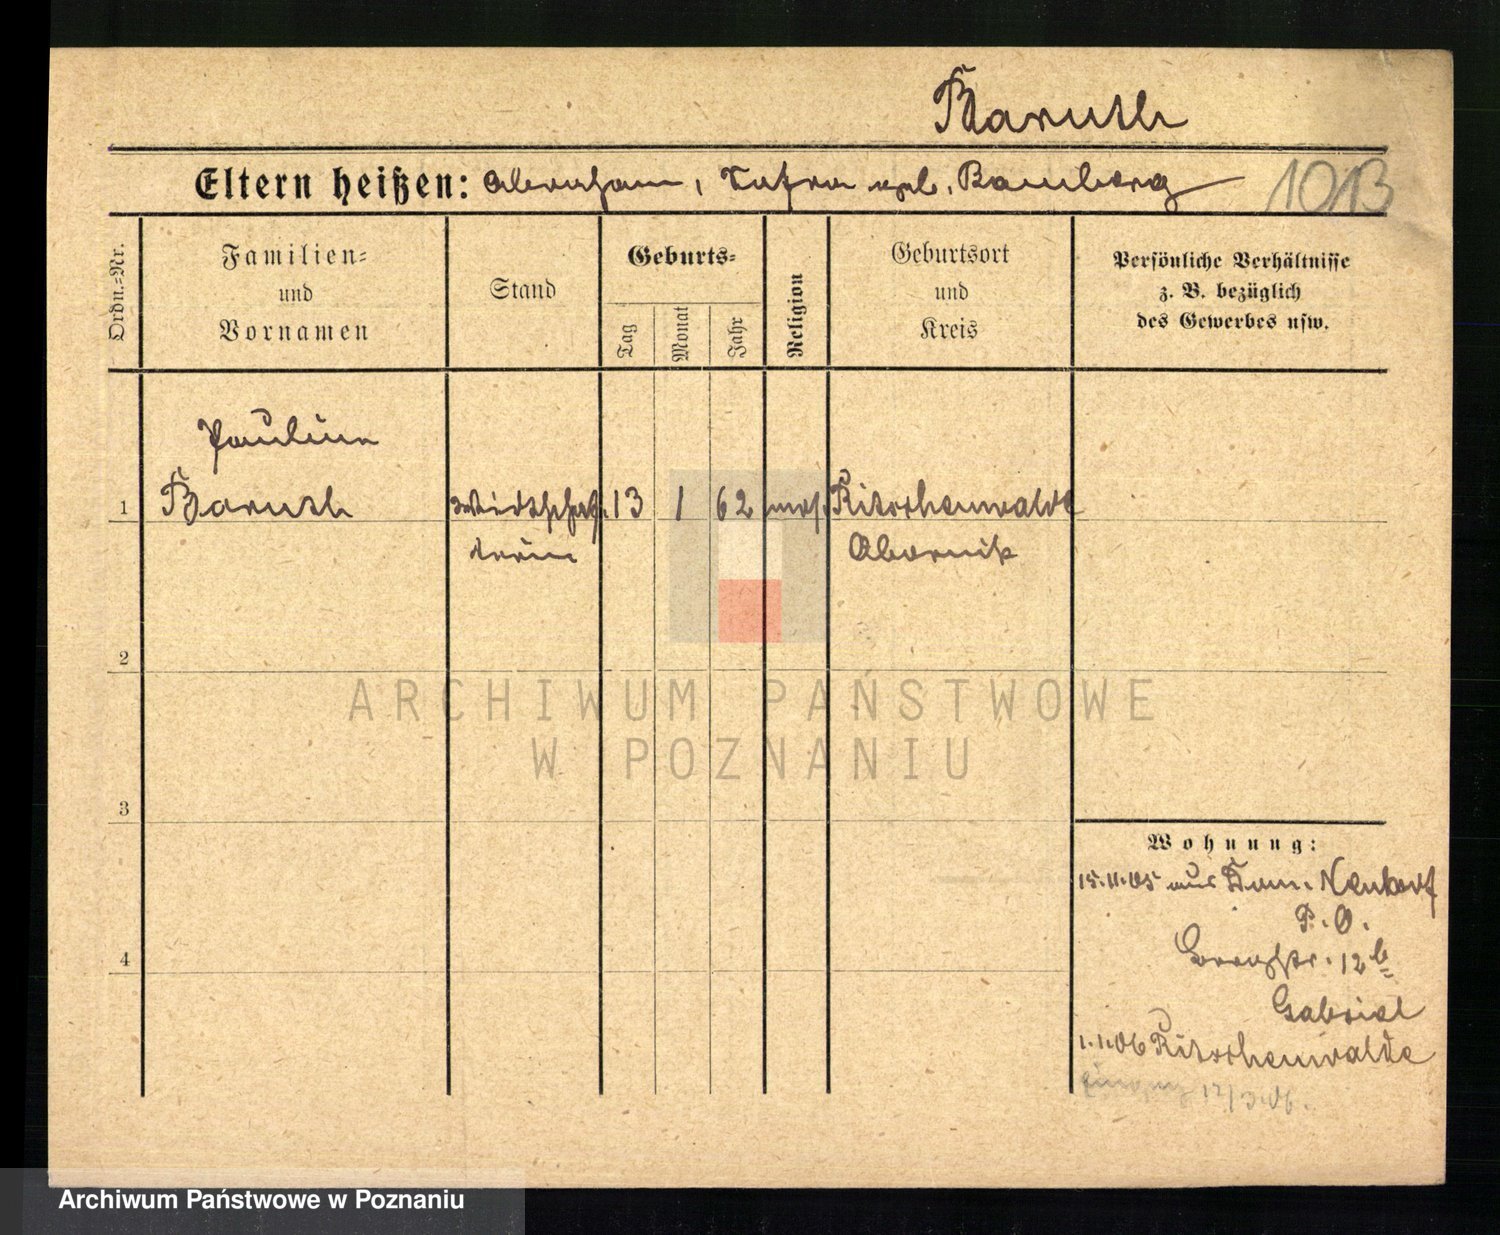 Baruch
Eltern heißen: Abraham, geb. Bamberg
1013
Ordn.-Nr.
Familien-
und
Vornamen
Stand
Geburts-
Tag
Monat
Jahr
Religion
Geburtsort
und
Kreis
Persönliche Verhältnisse
z. B. bezüglich
des Gewerbes usw.
Pauline
1 Baruch Wirtschaf- 13 1 62 mos. Ritschenwalde
terin Obornik
2
3
4
Wohnung:
15.11.05 aus Dom. Neudorf
P. O.
12b
Gabriel
1.1.06 Ritschenwalde
12/3.06.
ARCHIWUM PAŃSTWOWE
W POZNANIU
Archiwum Państwowe w Poznaniu